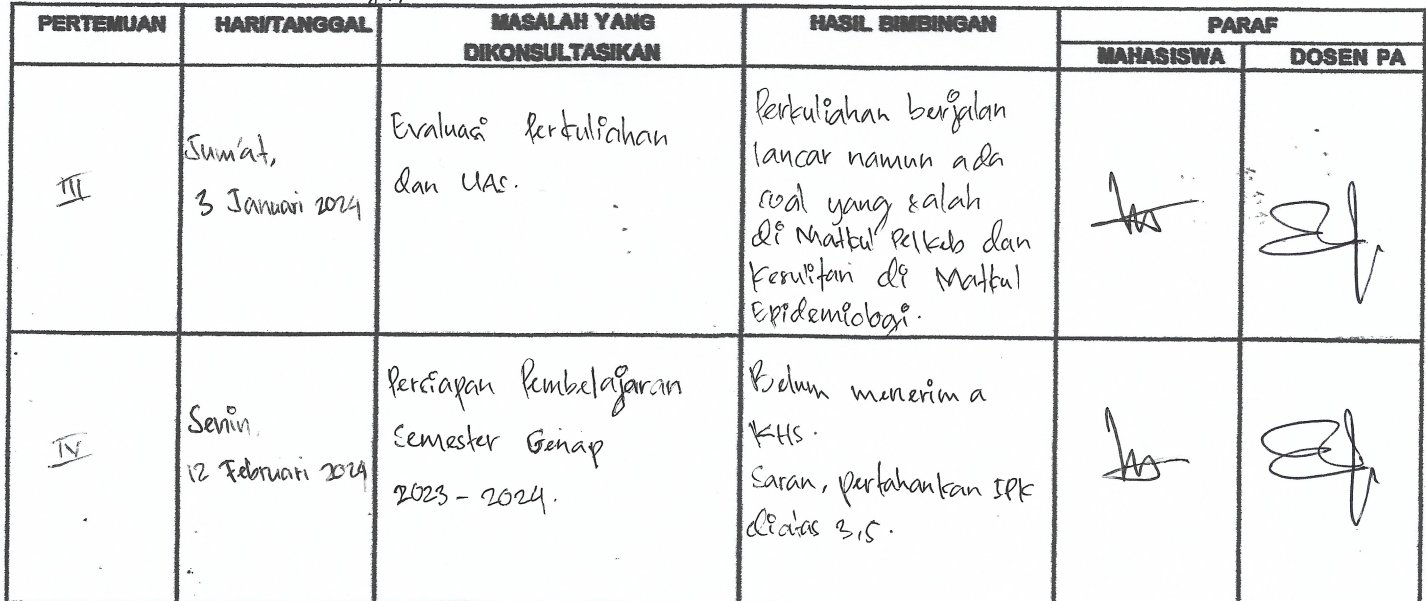 PERTEMUAN HARI/TANGGAL MASALAH YANG DIKONSULTASIKAN HASIL BIMBINGAN PARAF
MAHASISWA DOSEN PA
III
Jum'at,
3 Januari 2024
Evaluasi Perkuliahan
dan UAS.
Perkuliahan berjalan
lancar namun ada
soal yang salah
di Matkul Pelkeb dan
Kesulitan di Matkul
Epidemiologi.
IV
Senin,
12 Februari 2024
Persiapan Pembelajaran
Semester Genap
2023 - 2024.
Belum menerima
KHS.
Saran, pertahankan IPK
diatas 3,5.